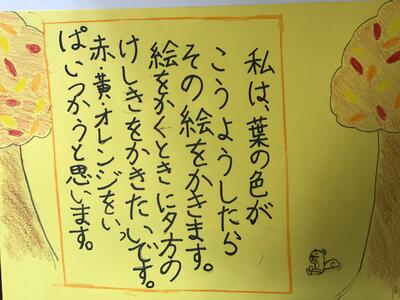 私は、葉の色が
こうようしたら
その絵をかきます。
絵をかくときに夕方の
けしきをかきたいです。
赤・黄・オレンジをいっ
ぱいつかうと思います。